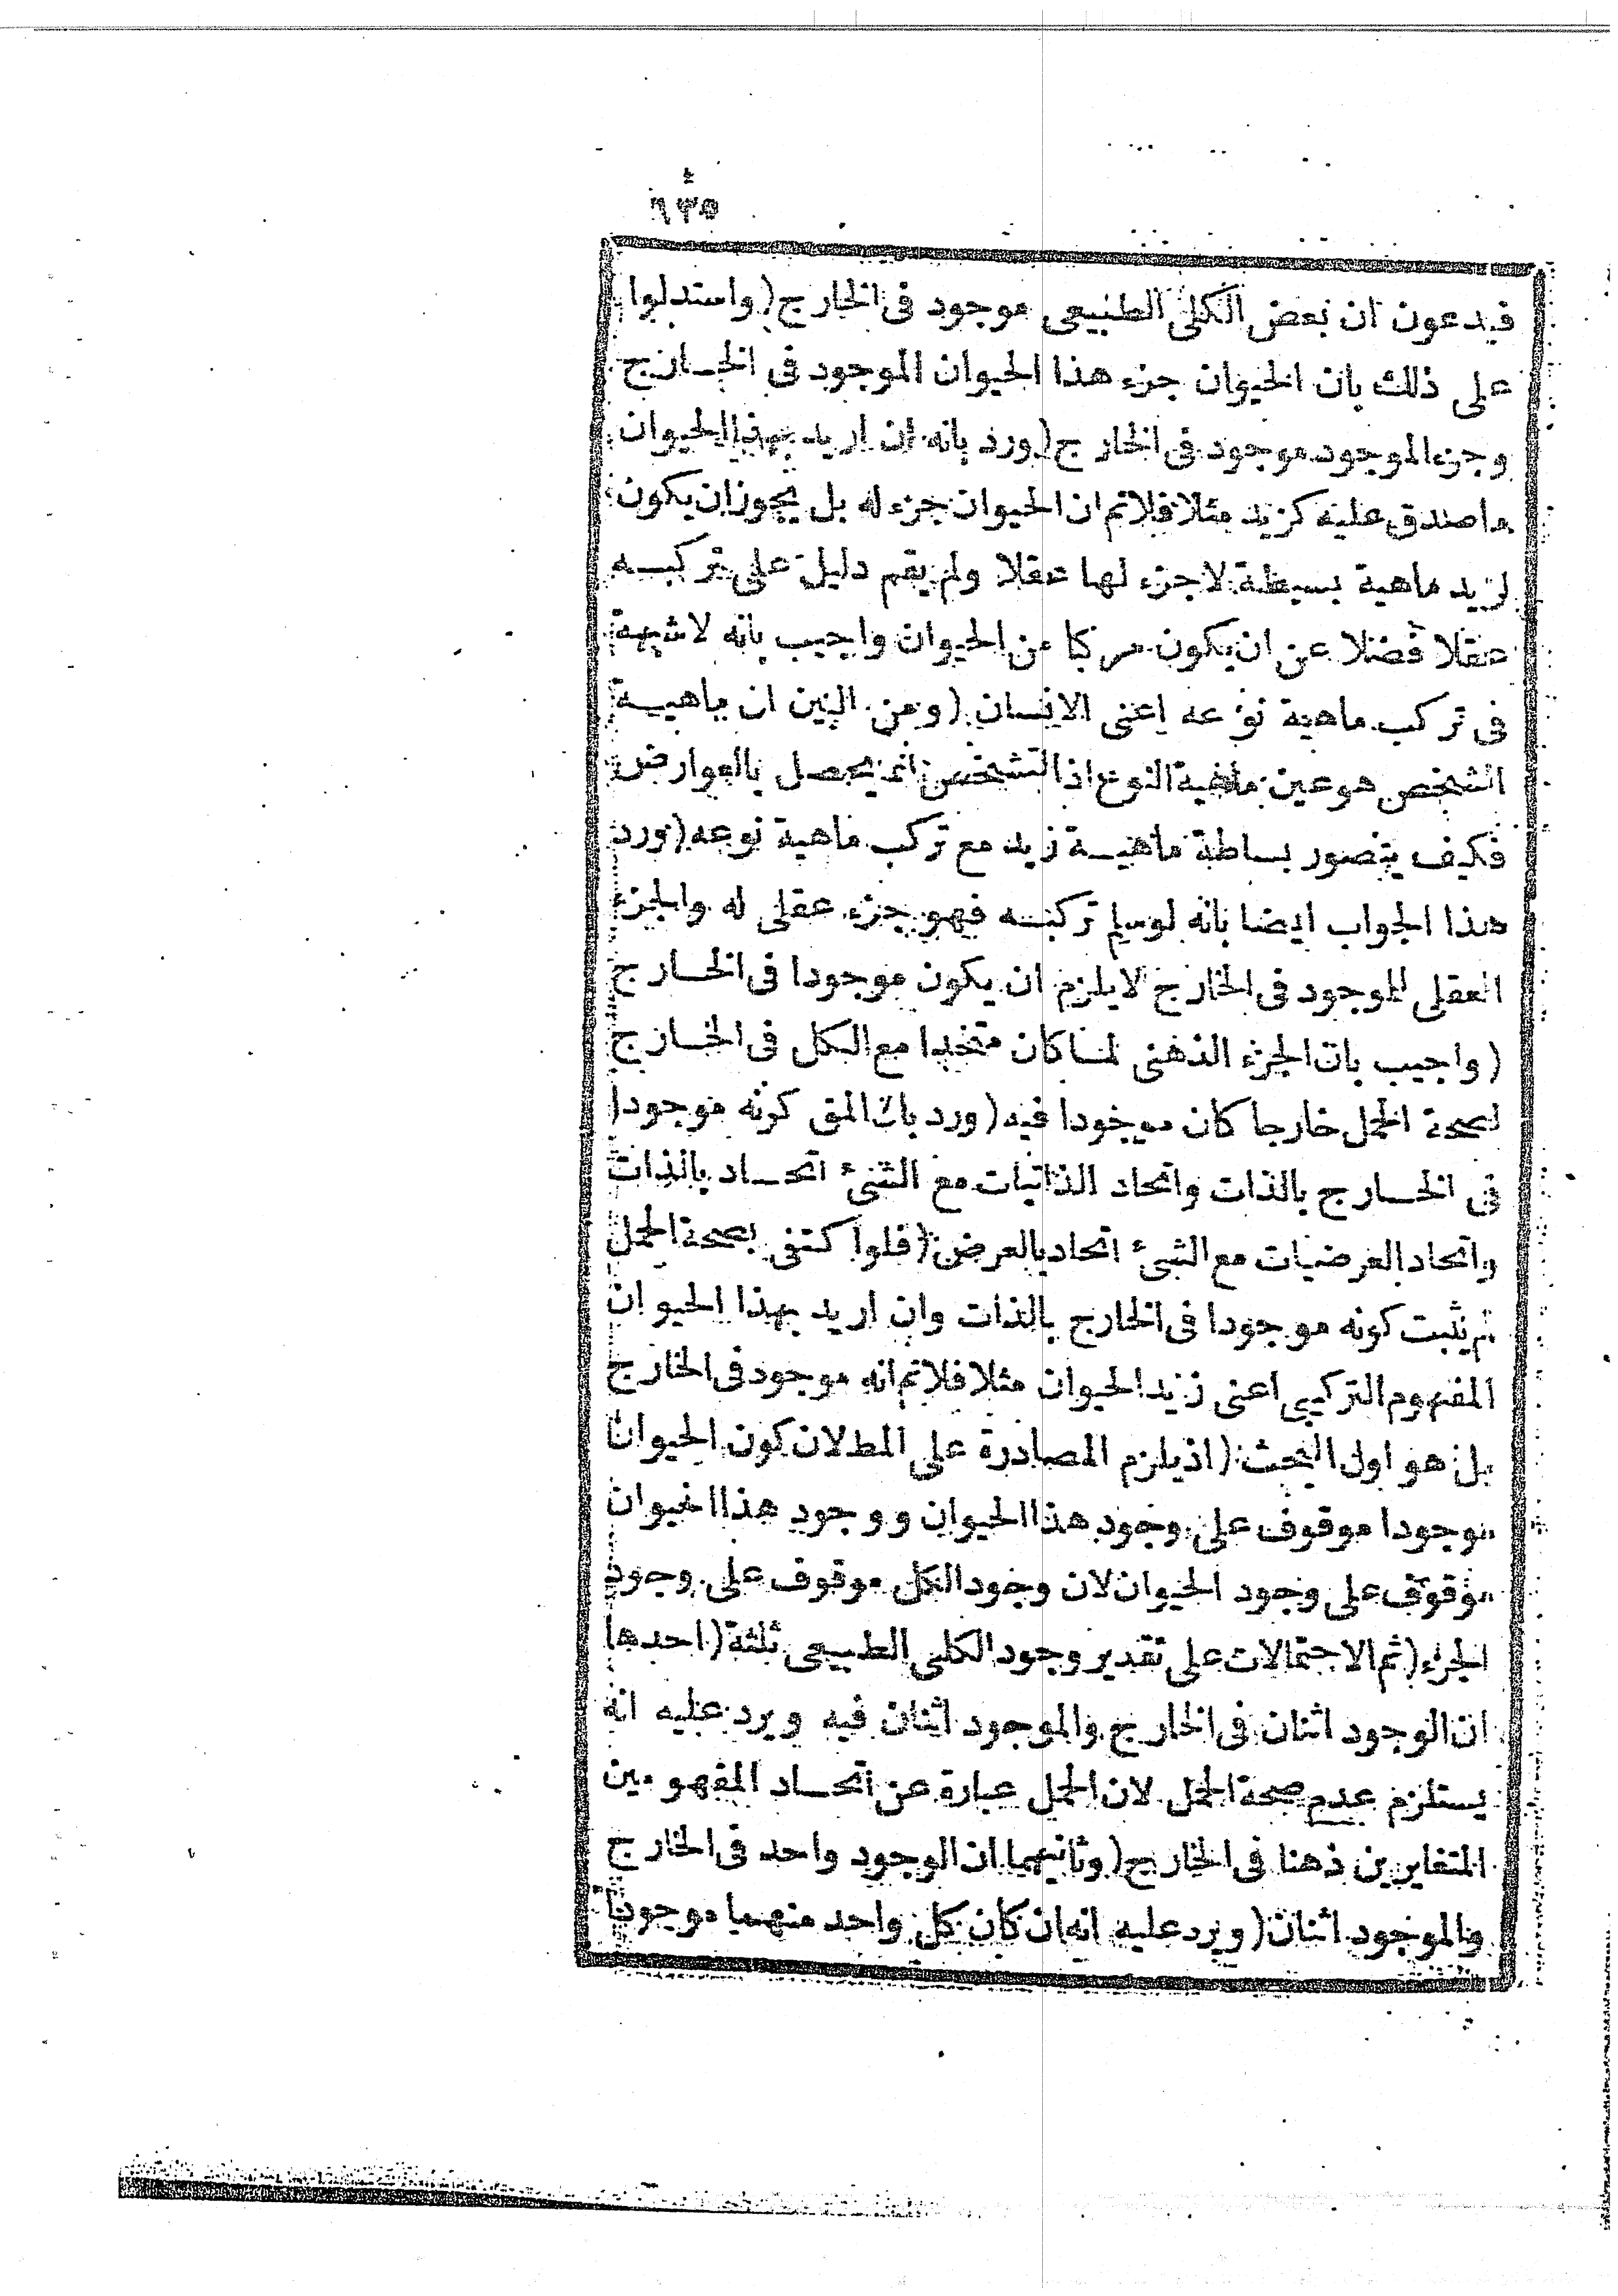 ٦٣٥
فيدعون ان بعض الكلى الطبيعى موجود فى الخارج (واستدلوا
على ذلك بان الحيوان جزء هذا الحيوان الموجود فى الخـارج
وجزء الموجود موجود فى الخارج (ورد بانه ان اريد بهذا الحيوان
ماصدق عليه كزيد مثلا فلانم ان الحيوان جزء له بل يجوز ان يكون
لزيد ماهية بسيطة لاجزء لها عقلا ولم يقم دليل على تركبـه
عقلا فضلا عن ان يكون مركبا من الحيوان واجيب بانه لاشبهة
فى تركب ماهية نوعه اعنى الانسان (ومن البين ان ماهيـة
الشخص هو عين ماهية النوع اذ التشخص انما يحصل بالعوارض
فكيف يتصور بساطة ماهيـة زيد مع تركب ماهية نوعه (ورد
هذا الجواب ايضا بانه لوسلم تركبـه فهو جزء عقلى له والجزء
العقلى للموجود فى الخارج لايلزم ان يكون موجودا فى الخـارج
(واجيب بان الجزء الذهنى لمـا كان متحدا مع الـكل فى الخـارج
لصحة الحمل خارجا كان موجودا فيه (ورد بان المق كونه موجودا
فى الخـارج بالذات واتحاد الذاتيات مع الشئ اتحـاد بالذات
واتحاد العرضيات مع الشئ اتحاد بالعرض (فلو اكتفى بصحة الحمل
لم يثبت كونه موجودا فى الخارج بالذات وان اريد بهذا الحيوان
المفهوم التركيبى اعنى زيد الحيوان مثلا فلانم انه موجود فى الخارج
بل هو اول البحث (اذ يلزم المصادرة على المط لان كون الحيوان
موجودا موقوف على وجود هذا الحيوان ووجود هذا الحيوان
موقوف على وجود الحيوان لان وجود الكل موقوف على وجود
الجزء (ثم الاحتمالات على تقدير وجود الكلى الطبيعى ثلثة (احدها
ان الوجود اثنان فى الخارج والموجود اثنان فيه ويرد عليه انه
يستلزم عدم صحة الحمل لان الحمل عبارة عن اتحـاد المفهومين
المتغايرين ذهنا فى الخارج (وثانيهما ان الوجود واحد فى الخارج
والموجود اثنان (ويرد عليه انه ان كان كل واحد منهما موجودا